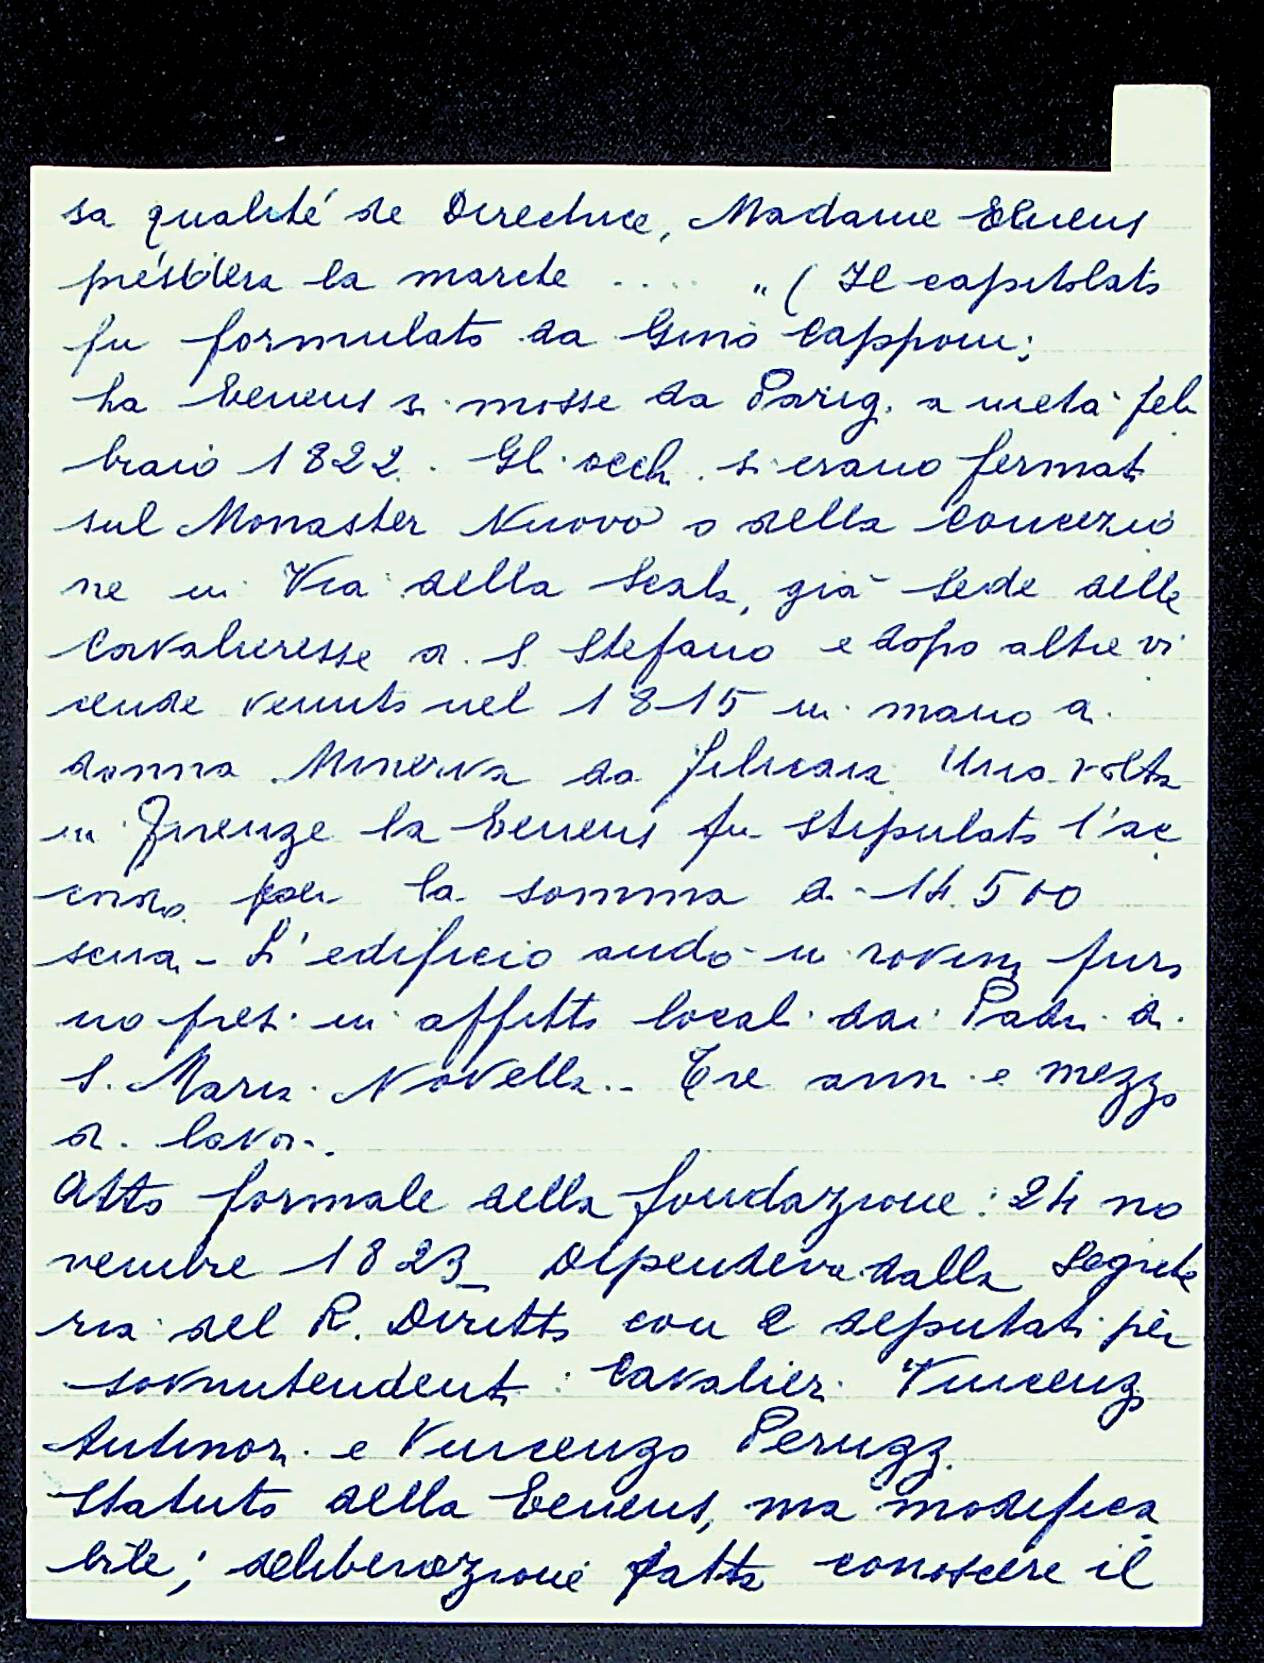 sa qualité de Directrice, Madame Eyneus
présidera la marche .... " ( Il capitolato
fu formulato da Gino Capponi;
La Eyneus si mosse da Parigi a metà feb
braio 1822. Gli occhi si erano fermati
sul Monaster Nuovo o della Concezio
ne in Via della Scala, già sede delle
Cavalieresse di S. Stefano e dopo altre vi
cende venuto nel 1815 in mano a
donna Minerva da Filicaia. Una volta
in Firenze la Eyneus fu stipulato l'ac
cordo per la somma di 14.500
scudi - L'edificio andò in rovina furo
no presi in affitto locali dai Padri di
S. Maria Novella.- Tre anni e mezzo
di lavori.
Atto formale della fondazione: 24 no
vembre 1823_ Dipendeva dalla Segrete
ria del R. Diritto con 2 deputati per
sovrintendenti: Cavalier Vincenzo
Antinori e Vincenzo Peruzzi.
Statuto della Eyneus, ma modifica
bile; deliberazione fatta conoscere il